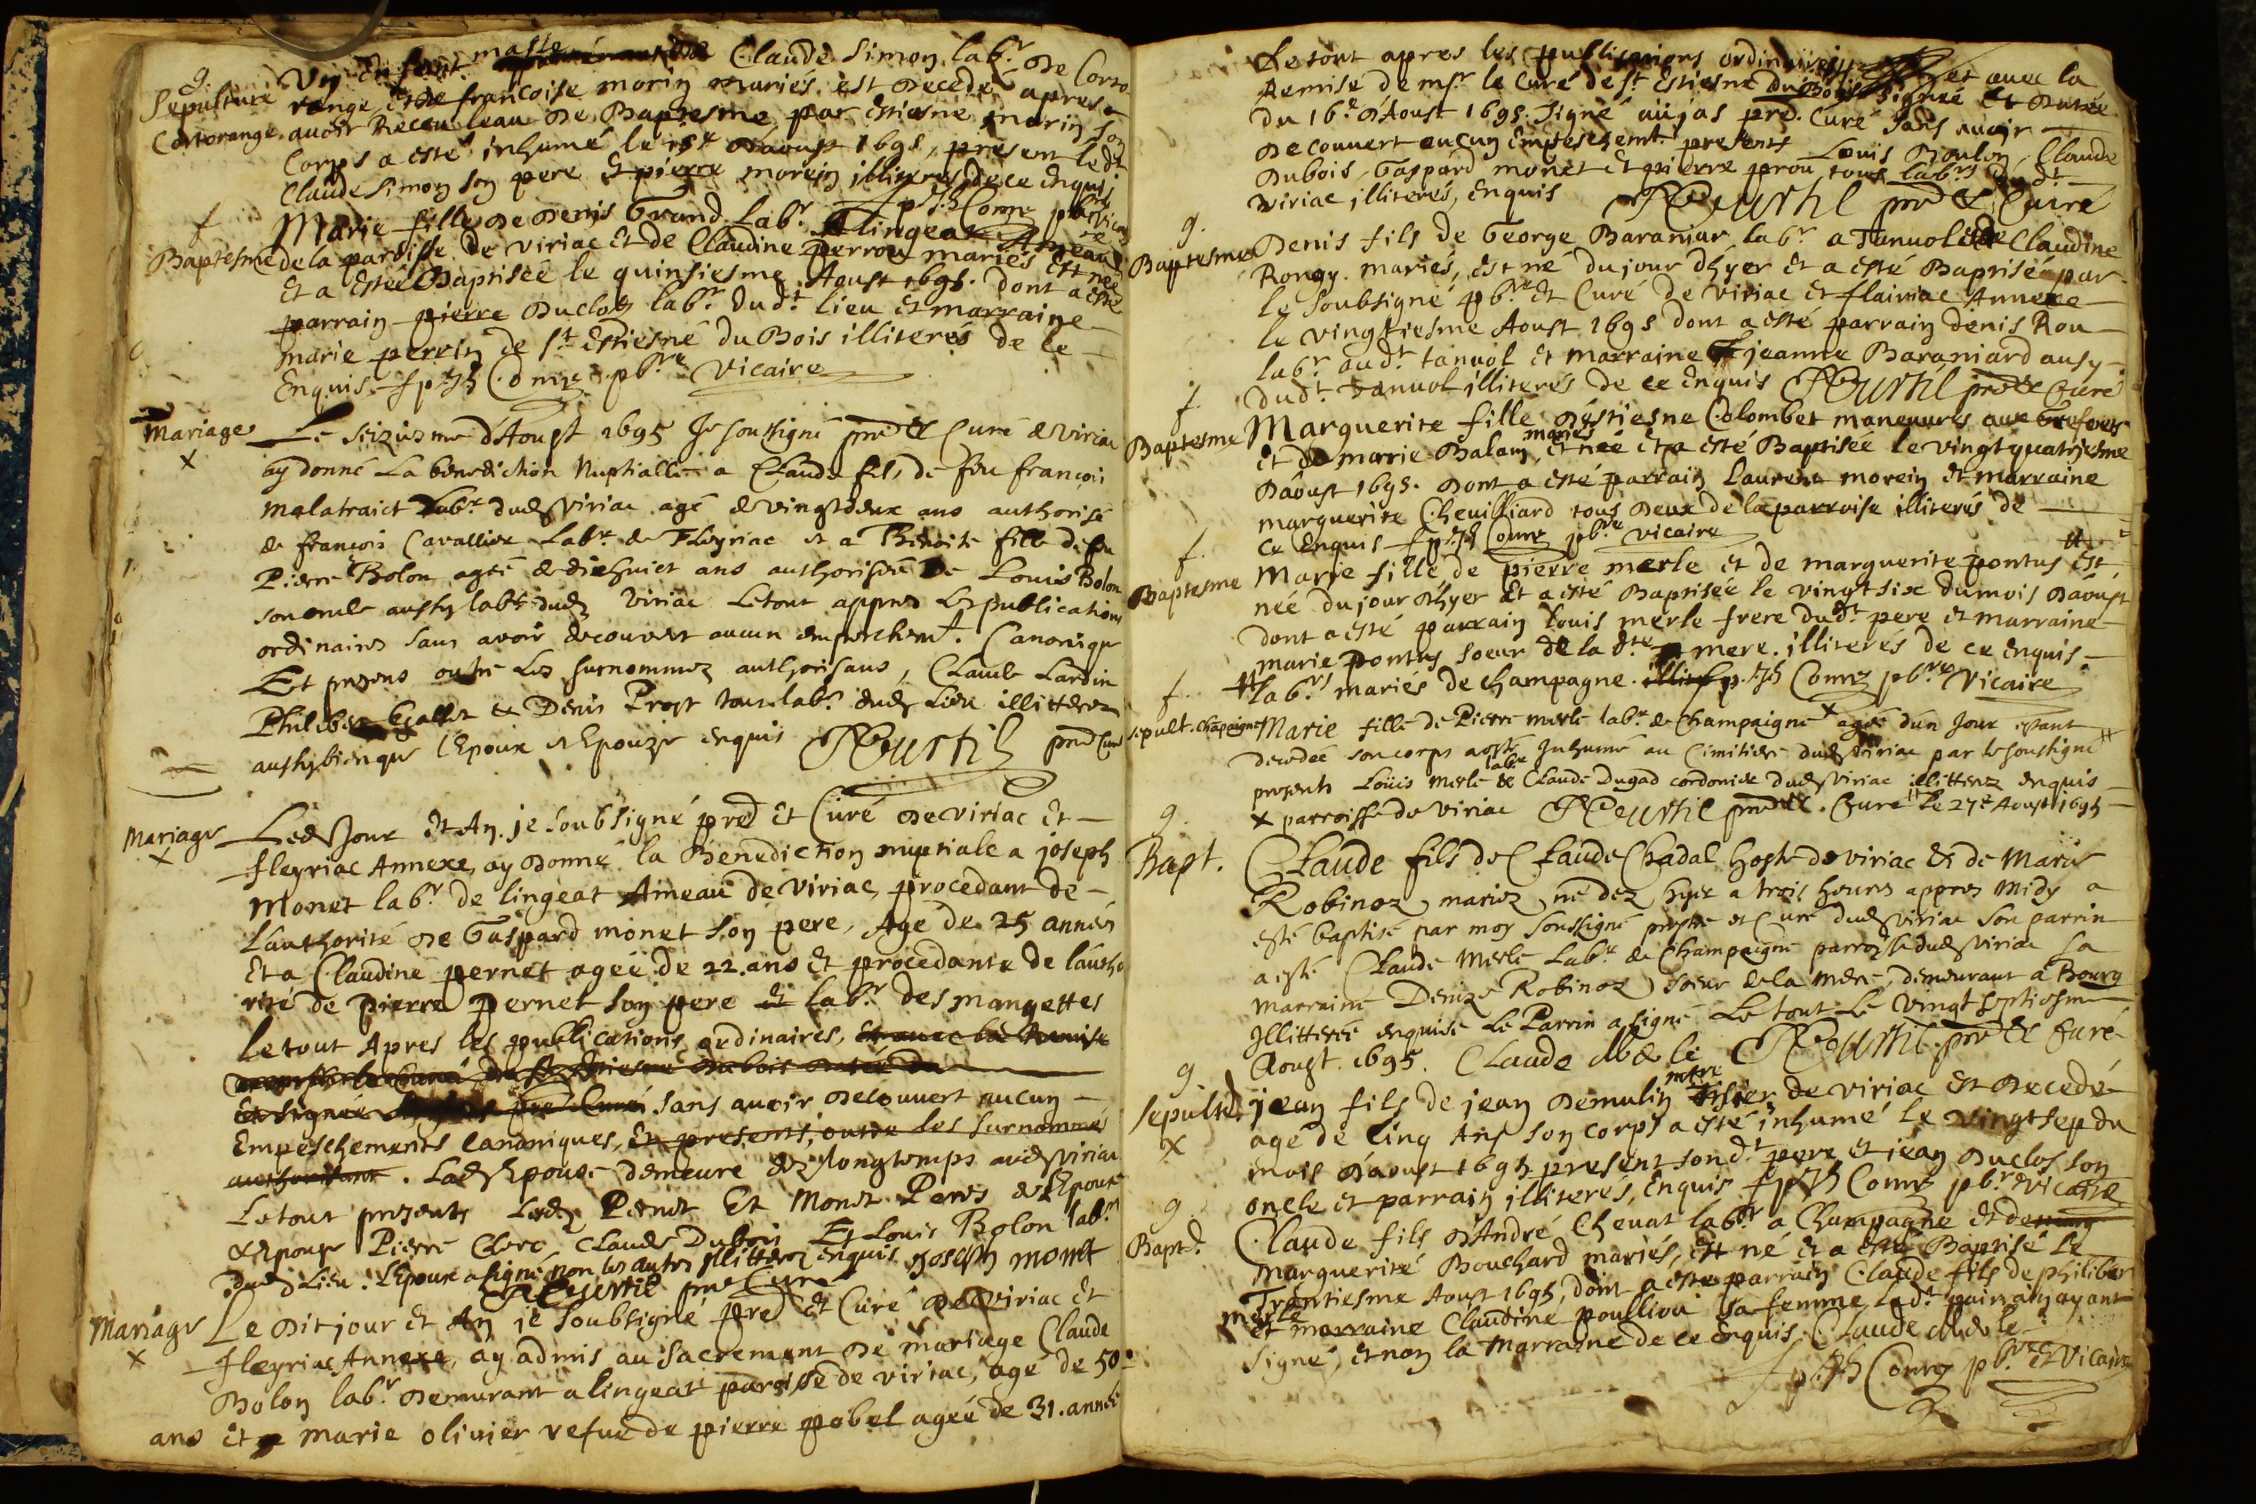 g.
Sepulture
Cortorange
Un Enfent masle de Claude Simon lab.r de Corto
range et de francoise morin mariés est decedé apres
avoir Receu leau de Baptesme par Estiesne morin son
Corps a esté inhumé le 15e daoust 1695, present led.t
Claude Simon son pere et pierre morein illiterés de ce enquis
f
Baptesme
Marie fille de Denis Grand lab.r a lingeat Ameau
de la paroisse de viriac et de Claudine perrou mariés est née
et a estée Baptisée le quinsiesme Aoust 1695. dont a esté
parrain pierre Duclos lab.r dud.t lieu et marraine
marie perrin de st Estiesne du Bois illiterés de ce
Enquis Comz pb.re vicaire
Mariage
x
Le seiziesme d'Aoust 1695 Je soussigné pre et Curé de viriac
ay donné la benediction Nuptialle a Claude fils de feu françois
malatraict Lab.r dud viriac agé de vingtdeux ans authorisé
de françois Cavallier Lab.r de Fleyriac et a Benoite fille de feu
Pierre Bolon agée de dixhuict ans authorisée de Louis Bolon
son oncle aussy lab.r dud viriac Letout appres les publications
ordinaires sans avoir decouvert aucun empeschem.t Canonique
Et presens outre Les surnommez authorisans, Claude Lardin
Philibert Gallet & Denis Prost tous lab.rs dud Lieu illitterez
aussybienque l'Epoux et Epouze enquis pre Curé
Mariage
x
Led Jour et An. je soubsigné pre et Curé de viriac et
fleyriac Annexe, ay donné la Benediction nuptiale a joseph
Monet lab.r de lingeat Ameau de viriac, procedant de
l'authorité de Gaspard monet son pere, Agé de 25 années
et a Claudine pernet agée de 22 ans et procedante de lautho
rité de pierre pernet son pere et lab.r des mangettes
le tout Apres les publications ordinaires, et avec la Remise
et signée pre Curé sans avoir decouvert aucun
Empeschements canoniques, et presents, outre les surnommés
authorisant. Lad Epouse demeure dez longtemps aud viriac
Letout presents Led Pernet Et Monet Peres de l'Epoux
& Epouse Pierre Clerc Claude Dubois Et Louis Bolon lab.rs
dud Lieu. l'Epoux a signé non les autres illitterez enquis joseph monet
pre Curé
Mariage
x
Le dit jour et An je soubsigné pre et Curé de viriac et
fleyriac Annexe, ay admis au sacrement de mariage Claude
Bolon lab.r demurant a lingeat paroisse de viriac, agé de 50
ans et a marie olivier vefve de pierre pobel agée de 31. années
Le tout apres les publications ordinaires et avec la
Remise de m.r le Curé de s.t Estiesne du Bois signée et datée
du 16.e d'Aoust 1695. signé aujas pre. Curé sans avoir
decouvert aucun Empeschem.t presents Louis Boulon, Claude
Dubois, Gaspard monet et pierre prou tous lab.rs dud.t
viriac illiterés, enquis pre & Curé
g.
Baptesme
Denis fils de George Baraniar lab.r a Tanuol et de Claudine
Rongy. mariés, est né du jour d'hyer et a esté Baptisé par
le soubsigné pb.re et Curé de viriac et flairiac Annexe
le vingtiesme Aoust 1695 dont a esté parrain denis Rou
lab.r aud.t tanuol et marraine jeanne Baraniard ausy
dud.t Tanuol illiterés de ce Enquis pre & Curé
f.
Baptesme
Marguerite fille d'Estiesne Colombet maneuvre aux
et de marie Balam mariés, et née et a esté Baptisée le vingtquatriesme
d'aoust 1695. dont a esté parrain Laurent morein et marraine
marguerite Chevilliard tous deux de la parroise illiterés de
ce enquis Comz pb.re vicaire
f.
Baptesme
Marie fille de pierre merle et de marguerite pontus # est
née du jour d'hyer et a esté Baptisée le vingtsix du mois d'aoust
dont a esté parrain louis merle frere dud.t pere et marraine
marie pontus soeur de la d.te mere. illiterés de ce enquis
# lab.rs mariés de champagne. Comz pb.re vicaire
f.
sepult. Chapaigne
Marie fille de Pierre merle lab.r de Champaigne x agée d'un Jour estant
decedée son corps a esté Inhumé au Cimitiere dud viriac par le soussigné #
presents Loüis Merle lab.r & Claude Dugad cordonier dud viriac illitterez enquis
x parroisse de viriac pre & Curé # Le 27e Aoust 1695
g.
Bapt.
Claude fils de Claude Chadal hoste de viriac & de Marie
Robinoz mariez, né dez hyer a trois heures appres Midy a
esté baptisé par moy Soussigné prestre et Curé dud viriac son parrin
a esté Claude Merle Lab.r de Champaigne parroisse dud viriac La
Marraine Denize Robinoz soeur de la Mere, demeurant a Bourg
Illitterée enquise Le Parrin a signé Le tout Le vingt septiesme
Aoust. 1695. Claude Merle pre & Curé
g
sepultre
x
jean fils de jean Demulin mtre tisier de viriac est decedé
agé de cinq Ans son corps a esté inhumé le vingtsep du
mois d'aoust 1695 present sond.t pere et jean Duclos son
oncle et parrain illiterés, Enquis Comz pb.re vicaire
g
Bapt.
Claude fils d'André Chevat lab.r a Champagne et de
Marguerite Bouchard mariés, est né et a esté Baptisé le
Trentiesme Aoust 1695, dont a esté parrain Claude fils de philiber
merle et marraine Claudine poulliou sa femme led.t parrain ayant
signé, et non la Marraine de ce Enquis. Claude Merle
Comz pb.re et vicaire